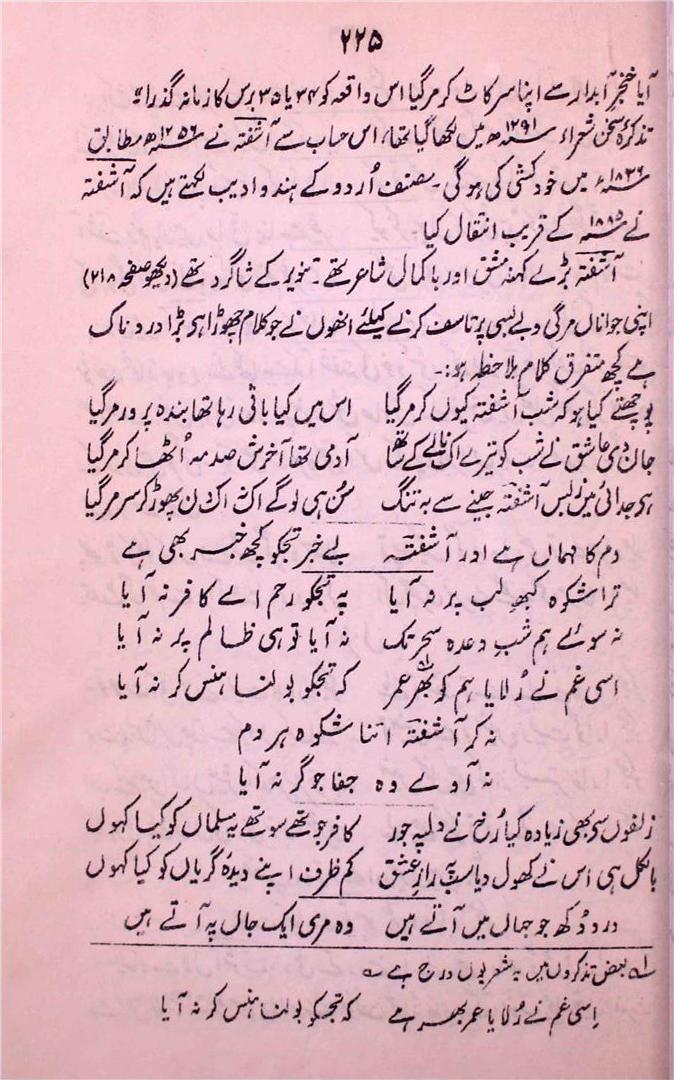 ۲۲۵
آیا خنجر آبدار سے اپنا سر کاٹ کر مر گیا اس واقعہ کو ۳۴ یا ۳۵ برس کا زمانہ گذرا"
تذکرۂ سخن شعراء ۱۲۹۱ھ میں لکھا گیا تھا، اس حساب سے آشفتہ نے ۱۲۵۶ھ مطابق
۱۸۳۶ء میں خود کشی کی ہوگی۔ مصنف اُردو کے ہندو ادیب لکھتے ہیں کہ آشفتہ
نے ۱۸۸۵ء کے قریب انتقال کیا۔
آشفتہ بڑے کہنہ مشق اور باکمال شاعر تھے۔ تنویر کے شاگرد تھے (دیکھو صفحہ ۲۱۸)
اپنی جواناں مرگی و بے بسی پر تاسف کرنے کیلئے انھوں نے جو کلام چھوڑا ہو بڑا دردناک
ہے کچھ متفرق کلام ملاحظہ ہو:۔
پوچھتے کیا ہو کہ شب آشفتہ کیوں کر مر گیا اس میں کیا باقی رہا تھا بندہ پرور مر گیا
جان دی عاشق نے شب کو تیرے اک نالے کے ساتھ آدمی تھا آخرش صدمہ اُٹھا کر مر گیا
ہو جدائی میں زبس آشفتہ جینے سے بہ تنگ سُن ہی لوگے اک نہ اک دن پھوڑ کر سر مر گیا
دم کا مہماں ہے اور آشفتہ بے خبر تجکو کچھ خبر بھی ہے
ترا شکوہ کبھو لب پر نہ آیا پہ تجکو رحم اے کافر نہ آیا
نہ سوئے ہم شبِ وعدہ سحر تک نہ آیا تو ہی ظالم پر نہ آیا
اسی غم نے رُلایا ہم کو بھر عمر۱؎ کہ تجکو بولنا ہنس کر نہ آیا
نہ کر آشفتہ اتنا شکوہ ہر دم
نہ آوے وہ جفا جو گر نہ آیا
زلفوں سو بھی زیادہ کیا رُخ نے دلپہ جور کافر جو تھے سو تھے یہ مسلماں کو کیا کہوں
بالکل ہی اس نے کھول دیا سب پہ رازِ عشق کم ظرف اپنے دیدۂ گریاں کو کیا کہوں
درد و دکھ جو جہاں میں آتے ہیں وہ مری ایک جان پہ آتے ہیں
۱؎ بعض تذکروں میں یہ شعر یوں درج ہے ؎
اِسی غم نے رُلایا عمر بھر ہے کہ تجکو بولنا ہنس کر نہ آیا